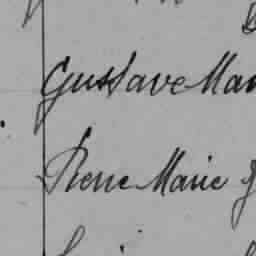 Gustave Mar
Pierre Marie